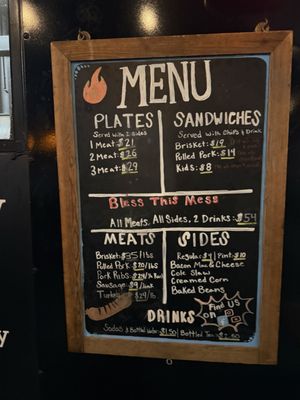 MENU
PLATES
Served With 2 Sides
1 Meat: $21
2 Meat: $26
3 Meat: $29
SANDWICHES
Served With Chips & Drink
Brisket: $19
Pulled Pork: $14
Kids: $8
Bless This Mess
All Meats, All Sides, 2 Drinks: $54
MEATS
Brisket: $35/lbs
Pulled Pork $20/lbs
Pork Ribs:
Sausage: $9/link
$24/lb
SIDES
Regular: $4 | Pint: $10
Bacon Mac & Cheese
Cole Slaw
Creamed Corn
Baked Beans
Find Us
on
DRINKS
Sodas & Bottled Water: $1.50 | Bottled Tea: $2.50
y